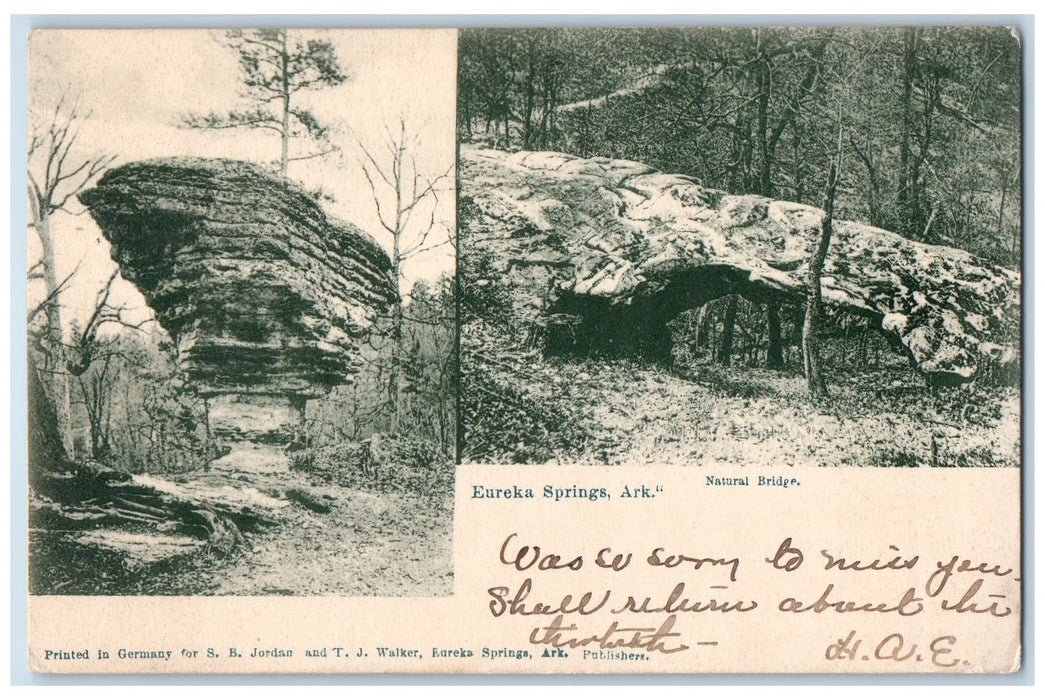 Eureka Springs, Ark."
Natural Bridge.
Was so sorry to miss you.
Shall return about the
H. A. E.
Printed in Germany for S. B. Jordan and T. J. Walker, Eureka Springs, Ark. Publishers.